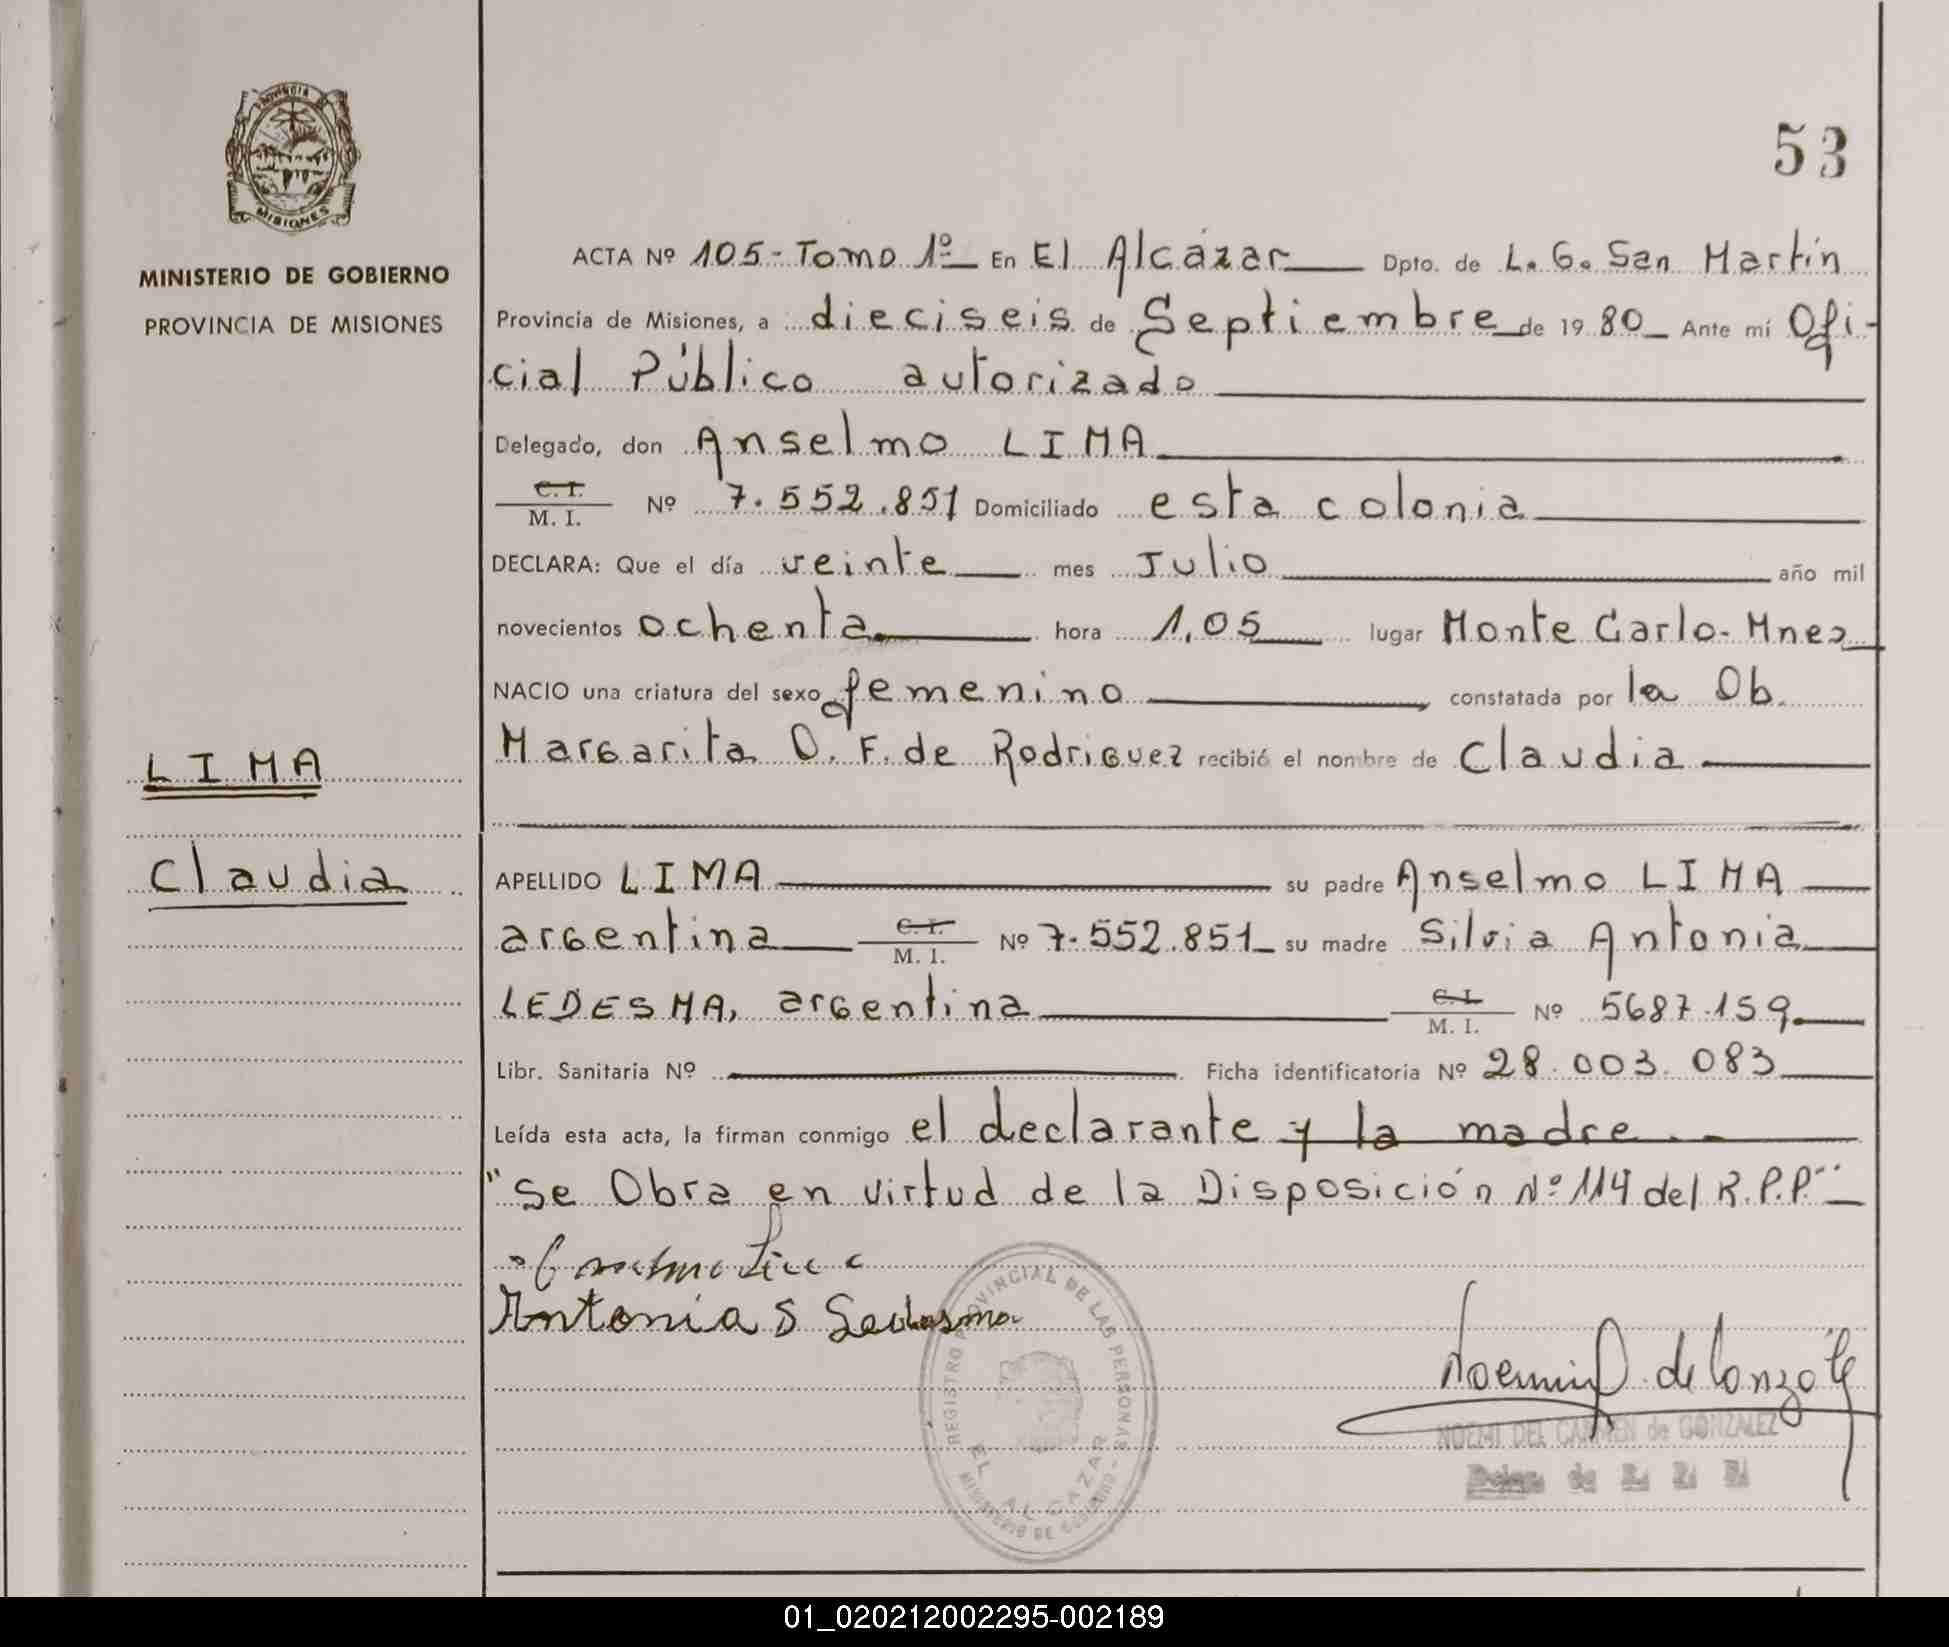 PROVINCIA DE
MISIONES
MINISTERIO DE GOBIERNO
PROVINCIA DE MISIONES
LIMA
Claudia
53
ACTA Nº 105-Tomo 1º En El Alcázar Dpto. de L. G. San Martín
Provincia de Misiones, a dieciseis de Septiembre de 19 80 Ante mí Ofi-
cial Público autorizado
Delegado, don Anselmo LIMA
C. I.
M. I. Nº 7.552.851 Domiciliado esta colonia
DECLARA: Que el día veinte mes Julio año mil
novecientos ochenta hora 1,05 lugar Monte Carlo- Mnes
NACIO una criatura del sexo femenino constatada por la Ob.
Margarita O. F. de Rodriguez recibió el nombre de Claudia
APELLIDO LIMA su padre Anselmo LIMA
argentina C. I. M. I. Nº 7.552.851 su madre Silvia Antonia
LEDESMA, argentina C. I. M. I. Nº 5687.159
Libr. Sanitaria Nº Ficha identificatoria Nº 28.003.083
Leída esta acta, la firman conmigo el declarante y la madre
"Se Obra en virtud de la Disposición Nº 114 del R.P.P"
Antonia S Ledesma
REGISTRO PROVINCIAL DE LAS PERSONAS
EL ALCAZAR
MINISTERIO DE GOBIERNO
NOEMI DEL CARMEN de GONZALEZ
01_020212002295-002189